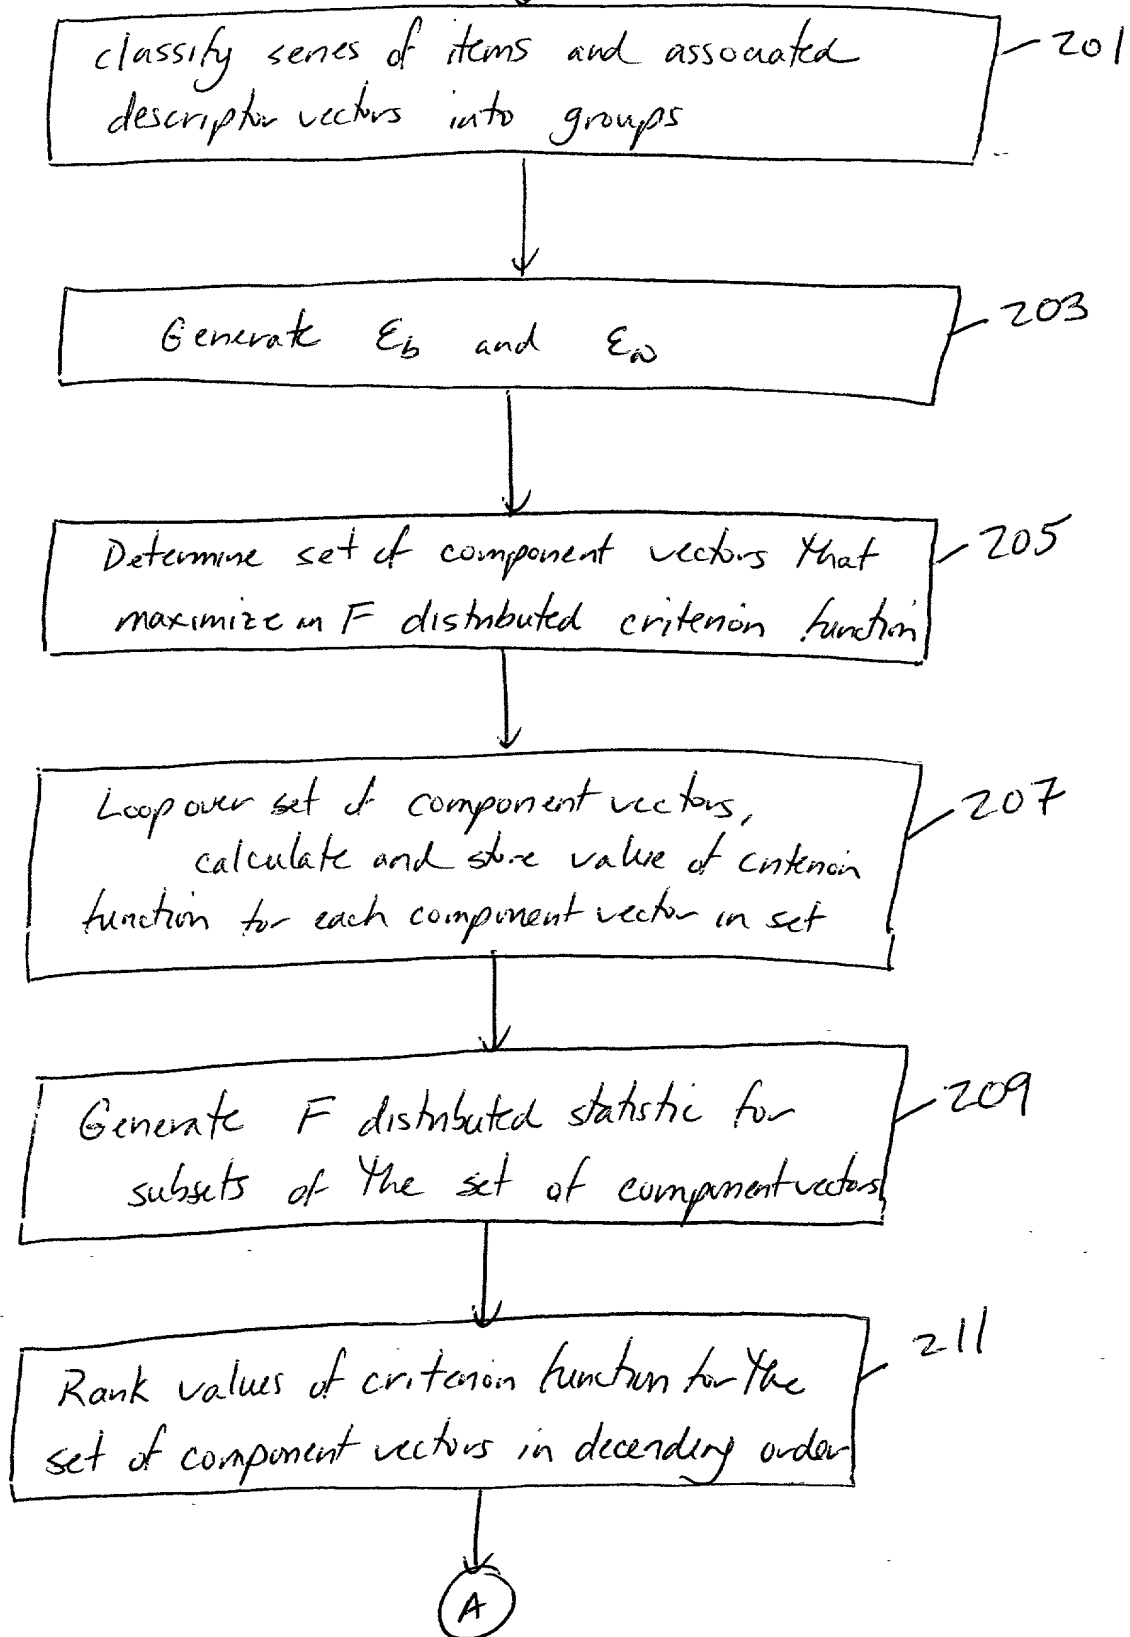 classify series of items and associated
descriptor vectors into groups
201
Generate Ɛb and Ɛω
203
Determine set of component vectors that
maximize an F distributed criterion function
205
Loop over set of component vectors,
calculate and store value of criterion
function for each component vector in set
207
Generate F distributed statistic for
subsets of the set of component vectors
209
Rank values of criterion function for the
set of component vectors in decending order
211
A